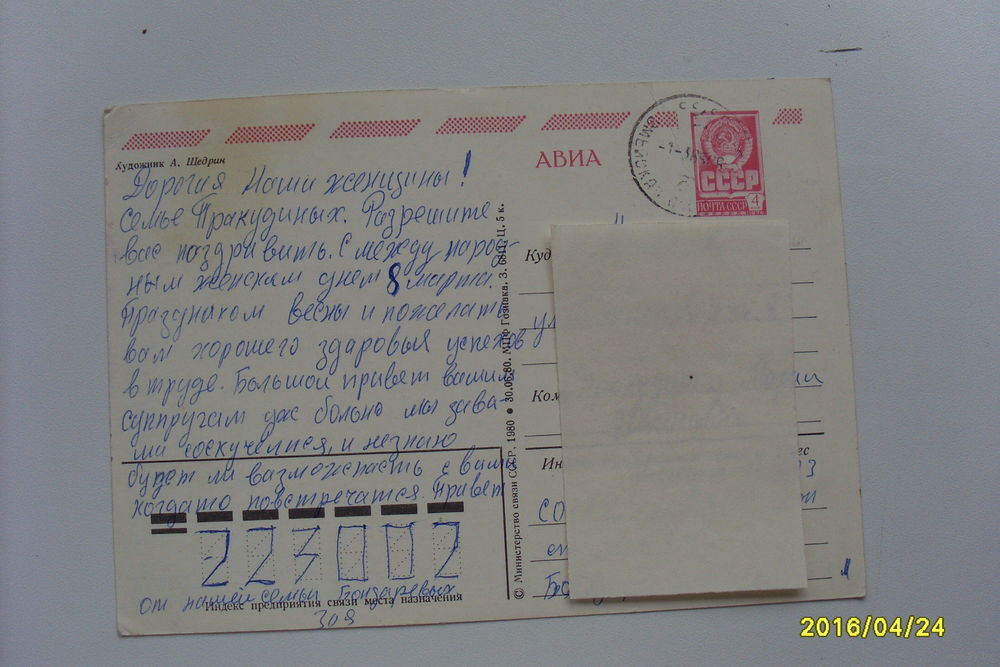 Художник А. Щедрин
Дорогия Наши женщины!
семье Пракудиных. Разрешите
вас поздравить. С между народ-
ным женскам днем 8 марта.
Празднаком весны и пожелать
вам хорошего здаровья успехов
в труде. Большой привет вашим
суппругам уж больно мы за ва-
ми соскучелися, и незнаю
будет ли вазможнасть с вами
когдато повстречатся. Привет
223002
от нашей семьи Бондаревых
Индекс предприятия связи места назначения
Зоя
© Министерство связи СССР, 1980 ● 30.06.80. МПФ Гознака. З. 6811. Ц. 5 к.
АВИА
СССР
ПОЧТА СССР
4
Куд
ул
Ком
Ин
ес
СО
2016/04/24